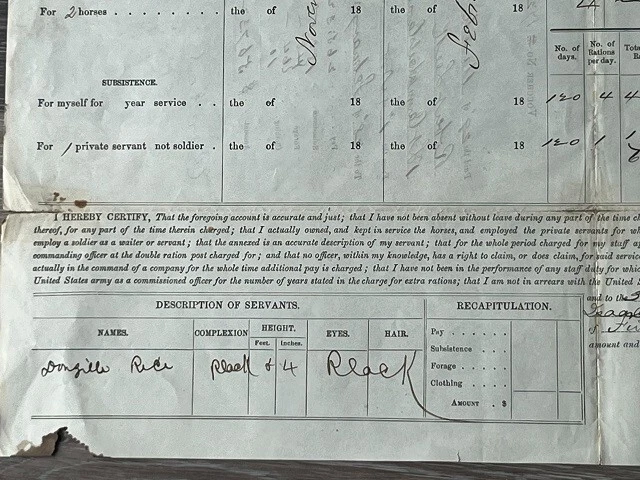 For 2 horses . . . . . . . the of 18 the of 18 4
No. of days. No. of Rations per day. Tot
SUBSISTENCE.
For myself for year service . . the of 18 the of 18 120 4 4
For 1 private servant not soldier . the of 18 the of 18 120 1 1
I HEREBY CERTIFY, That the foregoing account is accurate and just; that I have not been absent without leave during any part of the time c
thereof, for any part of the time therein charged; that I actually owned, and kept in service the horses, and employed the private servants for wh
employ a soldier as a waiter or servant; that the annexed is an accurate description of my servant; that for the whole period charged for my staff ap
commanding officer at the double ration post charged for; and that no officer, within my knowledge, has a right to claim, or does claim, for said service
actually in the command of a company for the whole time additional pay is charged; that I have not been in the performance of any staff duty for which
United States army as a commissioned officer for the number of years stated in the charge for extra rations; that I am not in arrears with the United S
and to the
DESCRIPTION OF SERVANTS. RECAPITULATION.
NAMES. COMPLEXION HEIGHT. EYES. HAIR.
Feet. Inches.
Pay . . . . .
Subsistence . . . .
Forage . . . .
Clothing . . . .
AMOUNT . $
Rice Black 4 Black
of
amount and